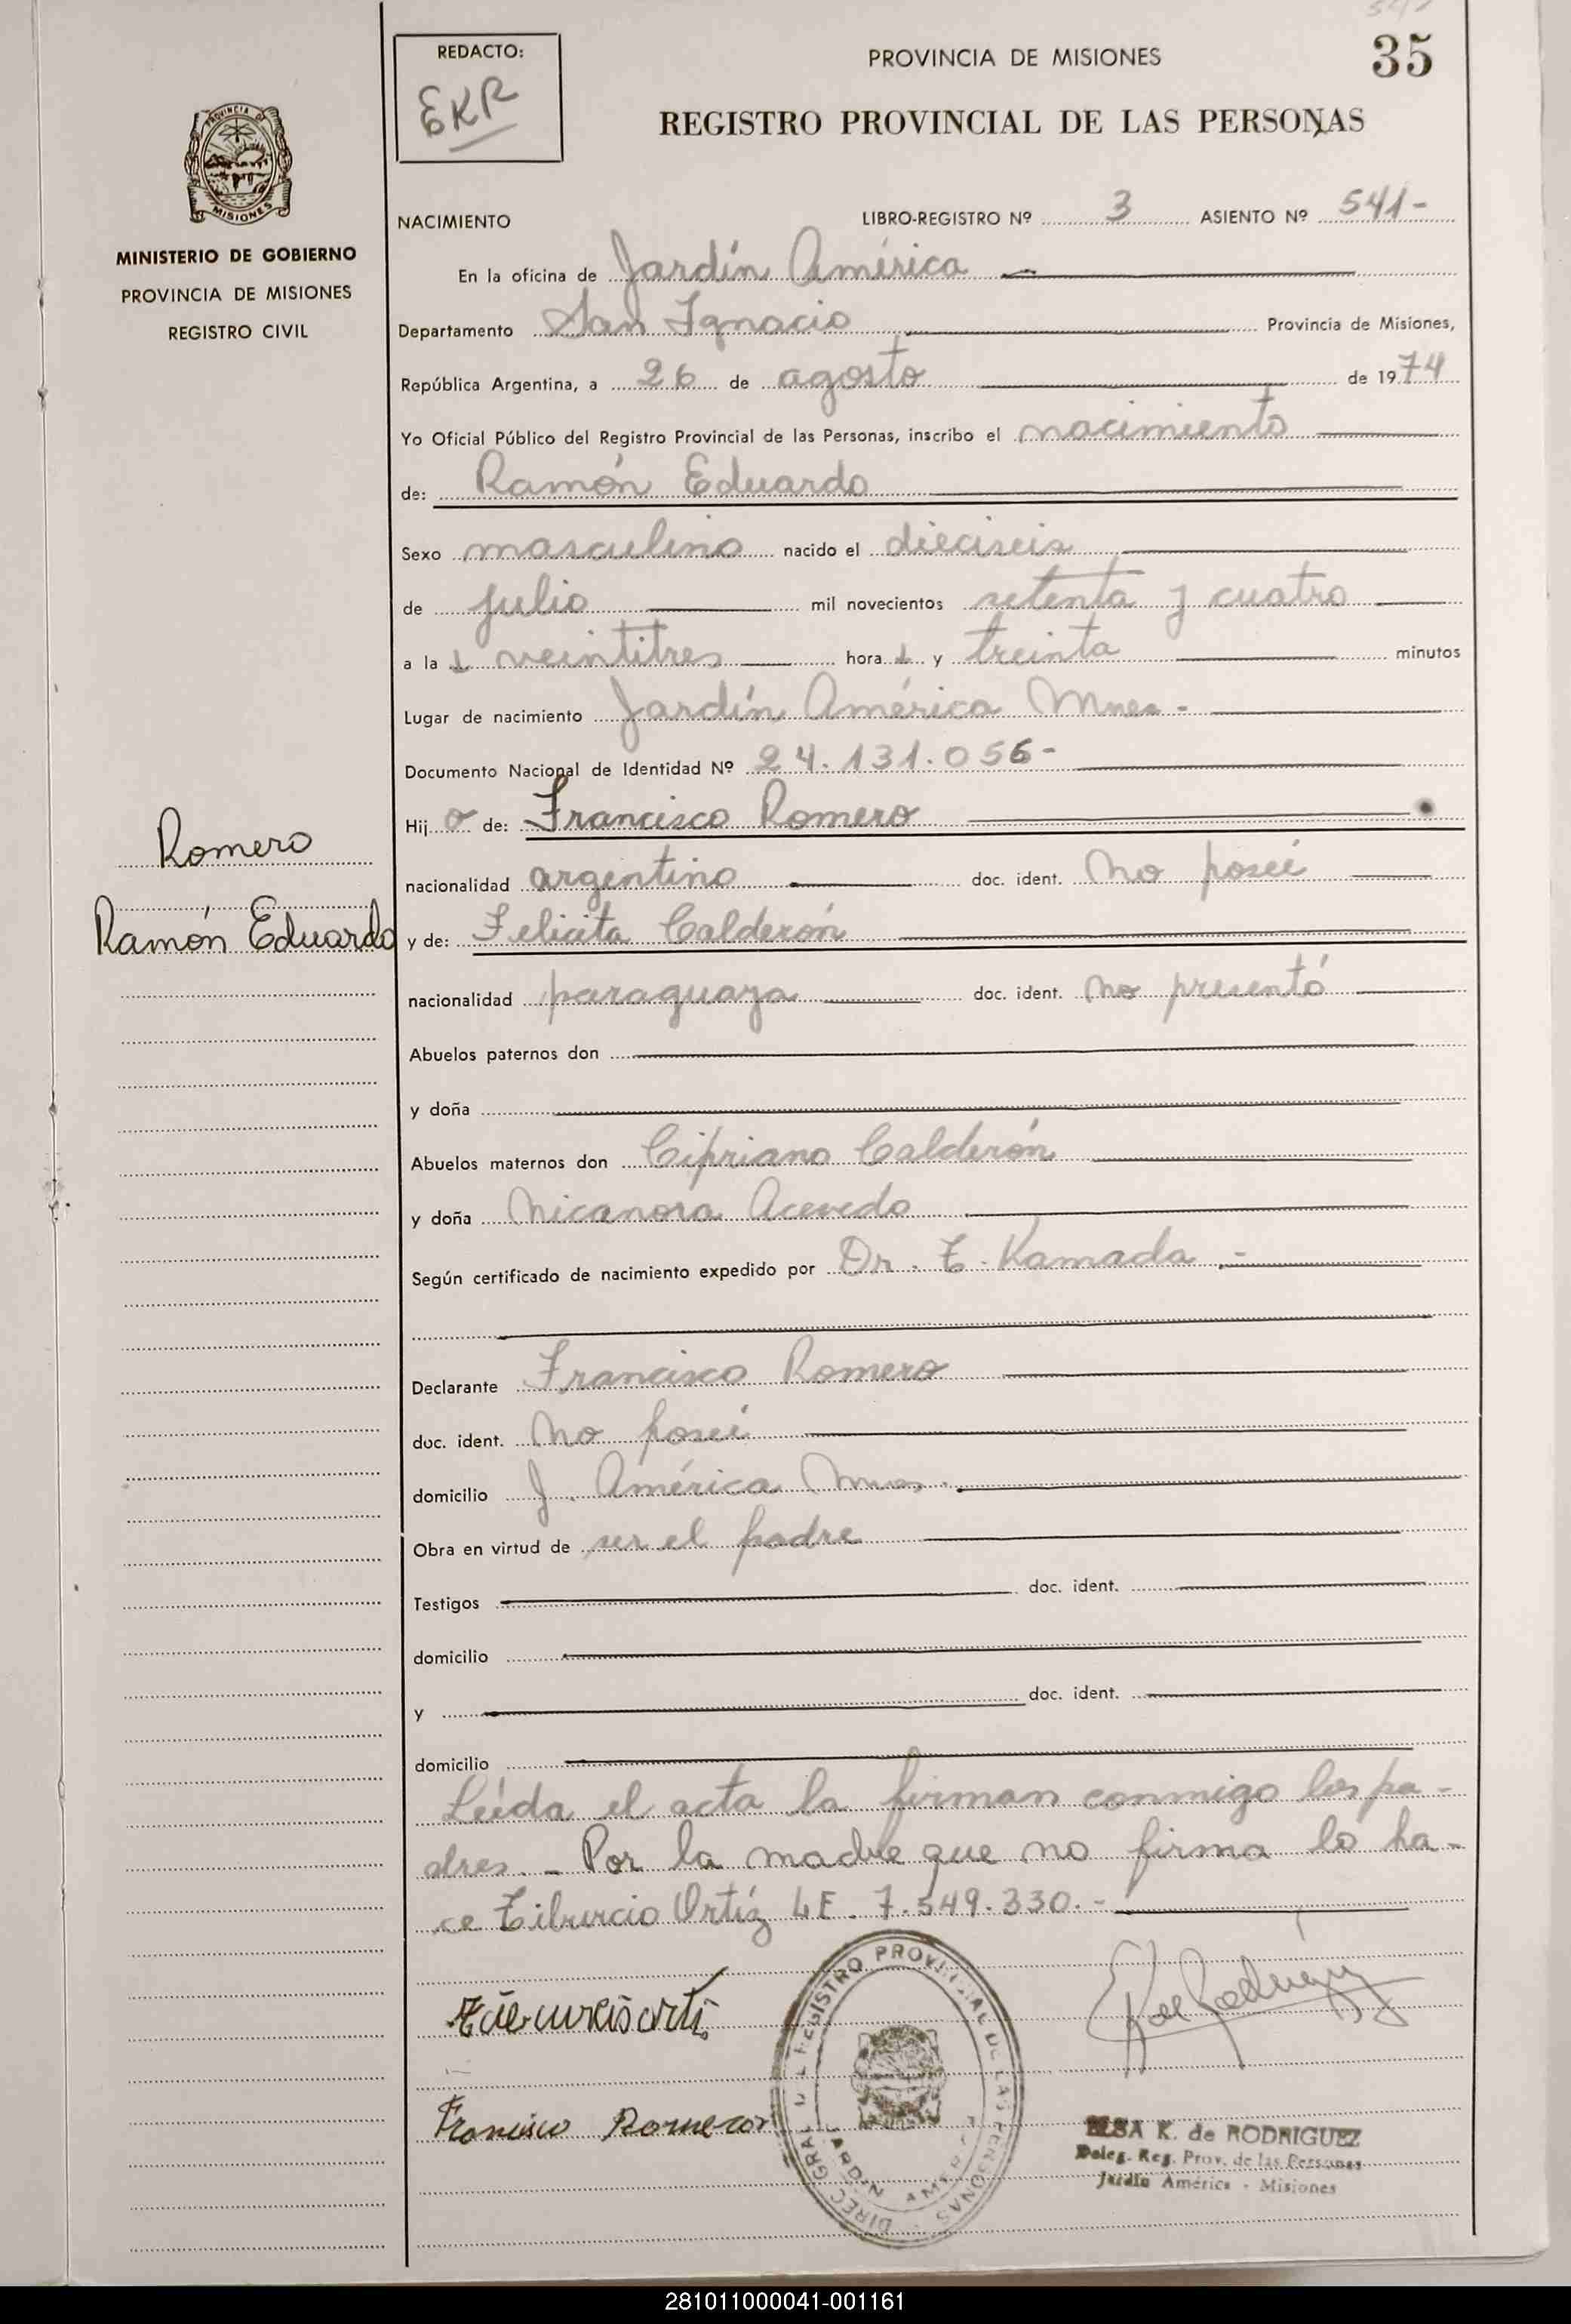 35
REDACTO:
EKR
PROVINCIA DE MISIONES
REGISTRO PROVINCIAL DE LAS PERSONAS
PROVINCIA DE
MISIONES
MINISTERIO DE GOBIERNO
PROVINCIA DE MISIONES
REGISTRO CIVIL
NACIMIENTO LIBRO-REGISTRO Nº 3 ASIENTO Nº 541-
En la oficina de Jardín América
Departamento San Ignacio Provincia de Misiones,
República Argentina, a 26 de agosto de 1974
Yo Oficial Público del Registro Provincial de las Personas, inscribo el nacimiento
de: Ramón Eduardo
Sexo masculino nacido el dieciseis
de julio mil novecientos setenta y cuatro
a la s veintitres hora s y treinta minutos
Lugar de nacimiento Jardín América Mnes -
Documento Nacional de Identidad Nº 24.131.056-
Hij o de: Francisco Romero
Romero
nacionalidad argentino doc. ident. no poseé
Ramón Eduardo
y de: Felicita Calderón
nacionalidad paraguaya doc. ident. no presentó
Abuelos paternos don
y doña
Abuelos maternos don Cipriano Calderón
y doña Nicanora Acevedo
Según certificado de nacimiento expedido por Dr. T. Kamada -
Declarante Francisco Romero
doc. ident. no poseé
domicilio J. América Mnes.
Obra en virtud de ser el padre
Testigos doc. ident.
domicilio
y doc. ident.
domicilio
Leída el acta la firman conmigo los pa-
dres. - Por la madre que no firma lo ha-
ce Tiburcio Ortíz LE. 7.549.330.-
Francisco Romero
DIREC. GRAL. DEL REGISTRO PROVINCIAL DE LAS PERSONAS
JARDIN AMERICA
ELSA K. de RODRIGUEZ
Deleg. Reg. Prov. de las Personas
Jardín América - Misiones
281011000041-001161